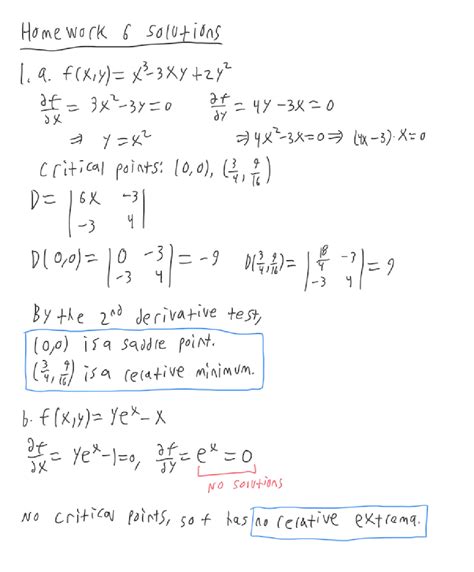 Homework 6 solutions
1. a. f(x,y) = x³-3xy+2y²
∂f/∂x = 3x²-3y=0 ∂f/∂y = 4y-3x=0
⇒ y=x² ⇒4x²-3x=0⇒ (4x-3)·x=0
Critical points: (0,0), (3/4, 9/16)
D= |6x -3|
|-3 4|
D(0,0)= |0 -3| = -9 D(3/4, 9/16)= |18/4 -3| = 9
|-3 4| |-3 4|
By the 2nd derivative test,
(0,0) is a saddle point.
(3/4, 9/16) is a relative minimum.
b. f(x,y)= ye^x-x
∂f/∂x = ye^x-1=0, ∂f/∂y = e^x=0
no solutions
no critical points, so f has no relative extrema.